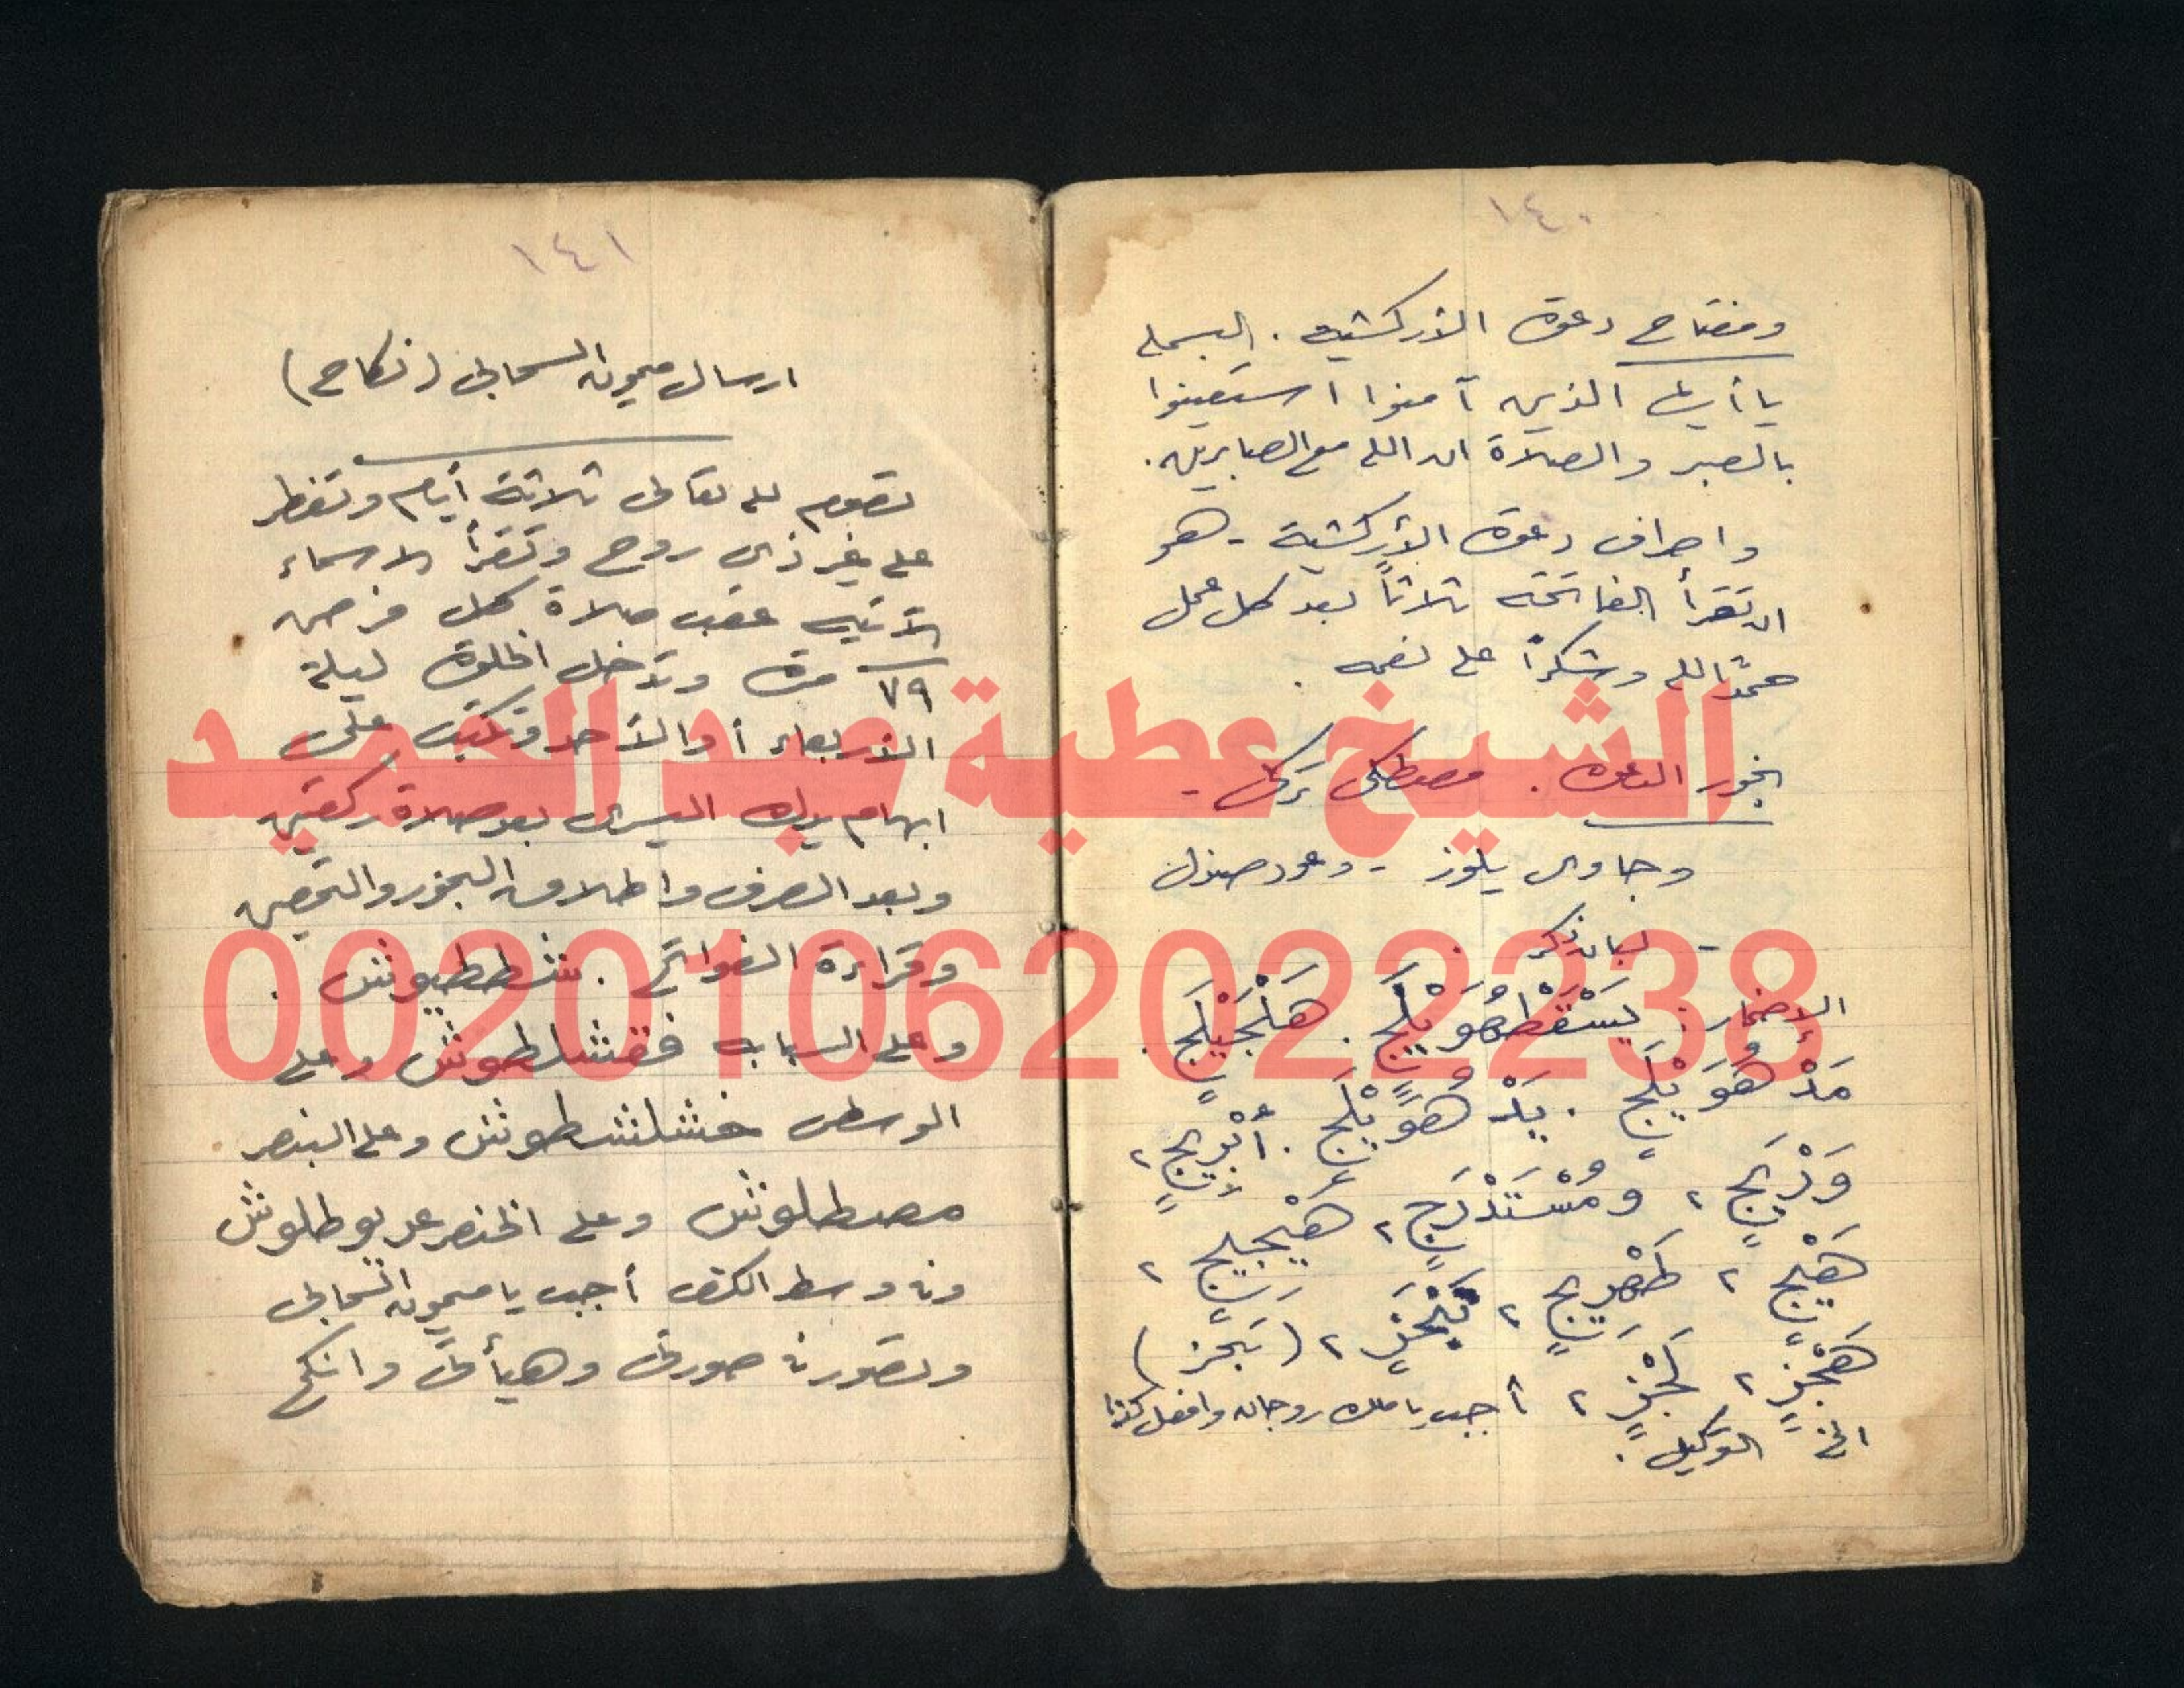 ١٤٠
ومفتاح دعوة الأركشيه . البسملة
يا أيها الذين آمنوا استعينوا
بالصبر والصلاة ان الله مع الصابرين .
واصراف دعوة الأركشية - هو
ان تقرأ الفاتحة ثلاثاً بعد كل عمل
حمداً لله وشكراً على نعمه .
بخور الدعوة . مصطكى تركى -
وجاوى بلوز - وعود صندل
- لبان ذكر .
الإضمار :
مَدْهُوَيْلَجٍ . يَدْهُوَيْلَجٍ .
ومُسْتَدْرَجٍ ،
أجب يا ملك روحان وافعل كذا
الخ التوكيل .
١٤١
ارسال ميمون السحابى (نكاح)
تصوم لله تعالى ثلاثة أيام وتفطر
على غير ذى روح وتقرأ الاسماء
الآتيه عقب صلاة كل فرض
٧٩ مرة وتدخل الخلوة ليلة
الأربعاء أو الأحد وتكتب على
ابهام يدك اليسرى بعد صلاة ركعتين
وبعد الصرف واطلاق البخور والتحصين
وقراءة الفواتح . شططيوش .
وعلى السبابه فقشلطوش وعلى
الوسطى خشلشطوش وعلى البنصر
مصطلوش وعلى الخنصر
وفى وسط الكف أجب يا ميمون السحابى
وتصور فى صورتى وهيأتى وانكح
الشيخ عطية عبد الحميد
00201062022238